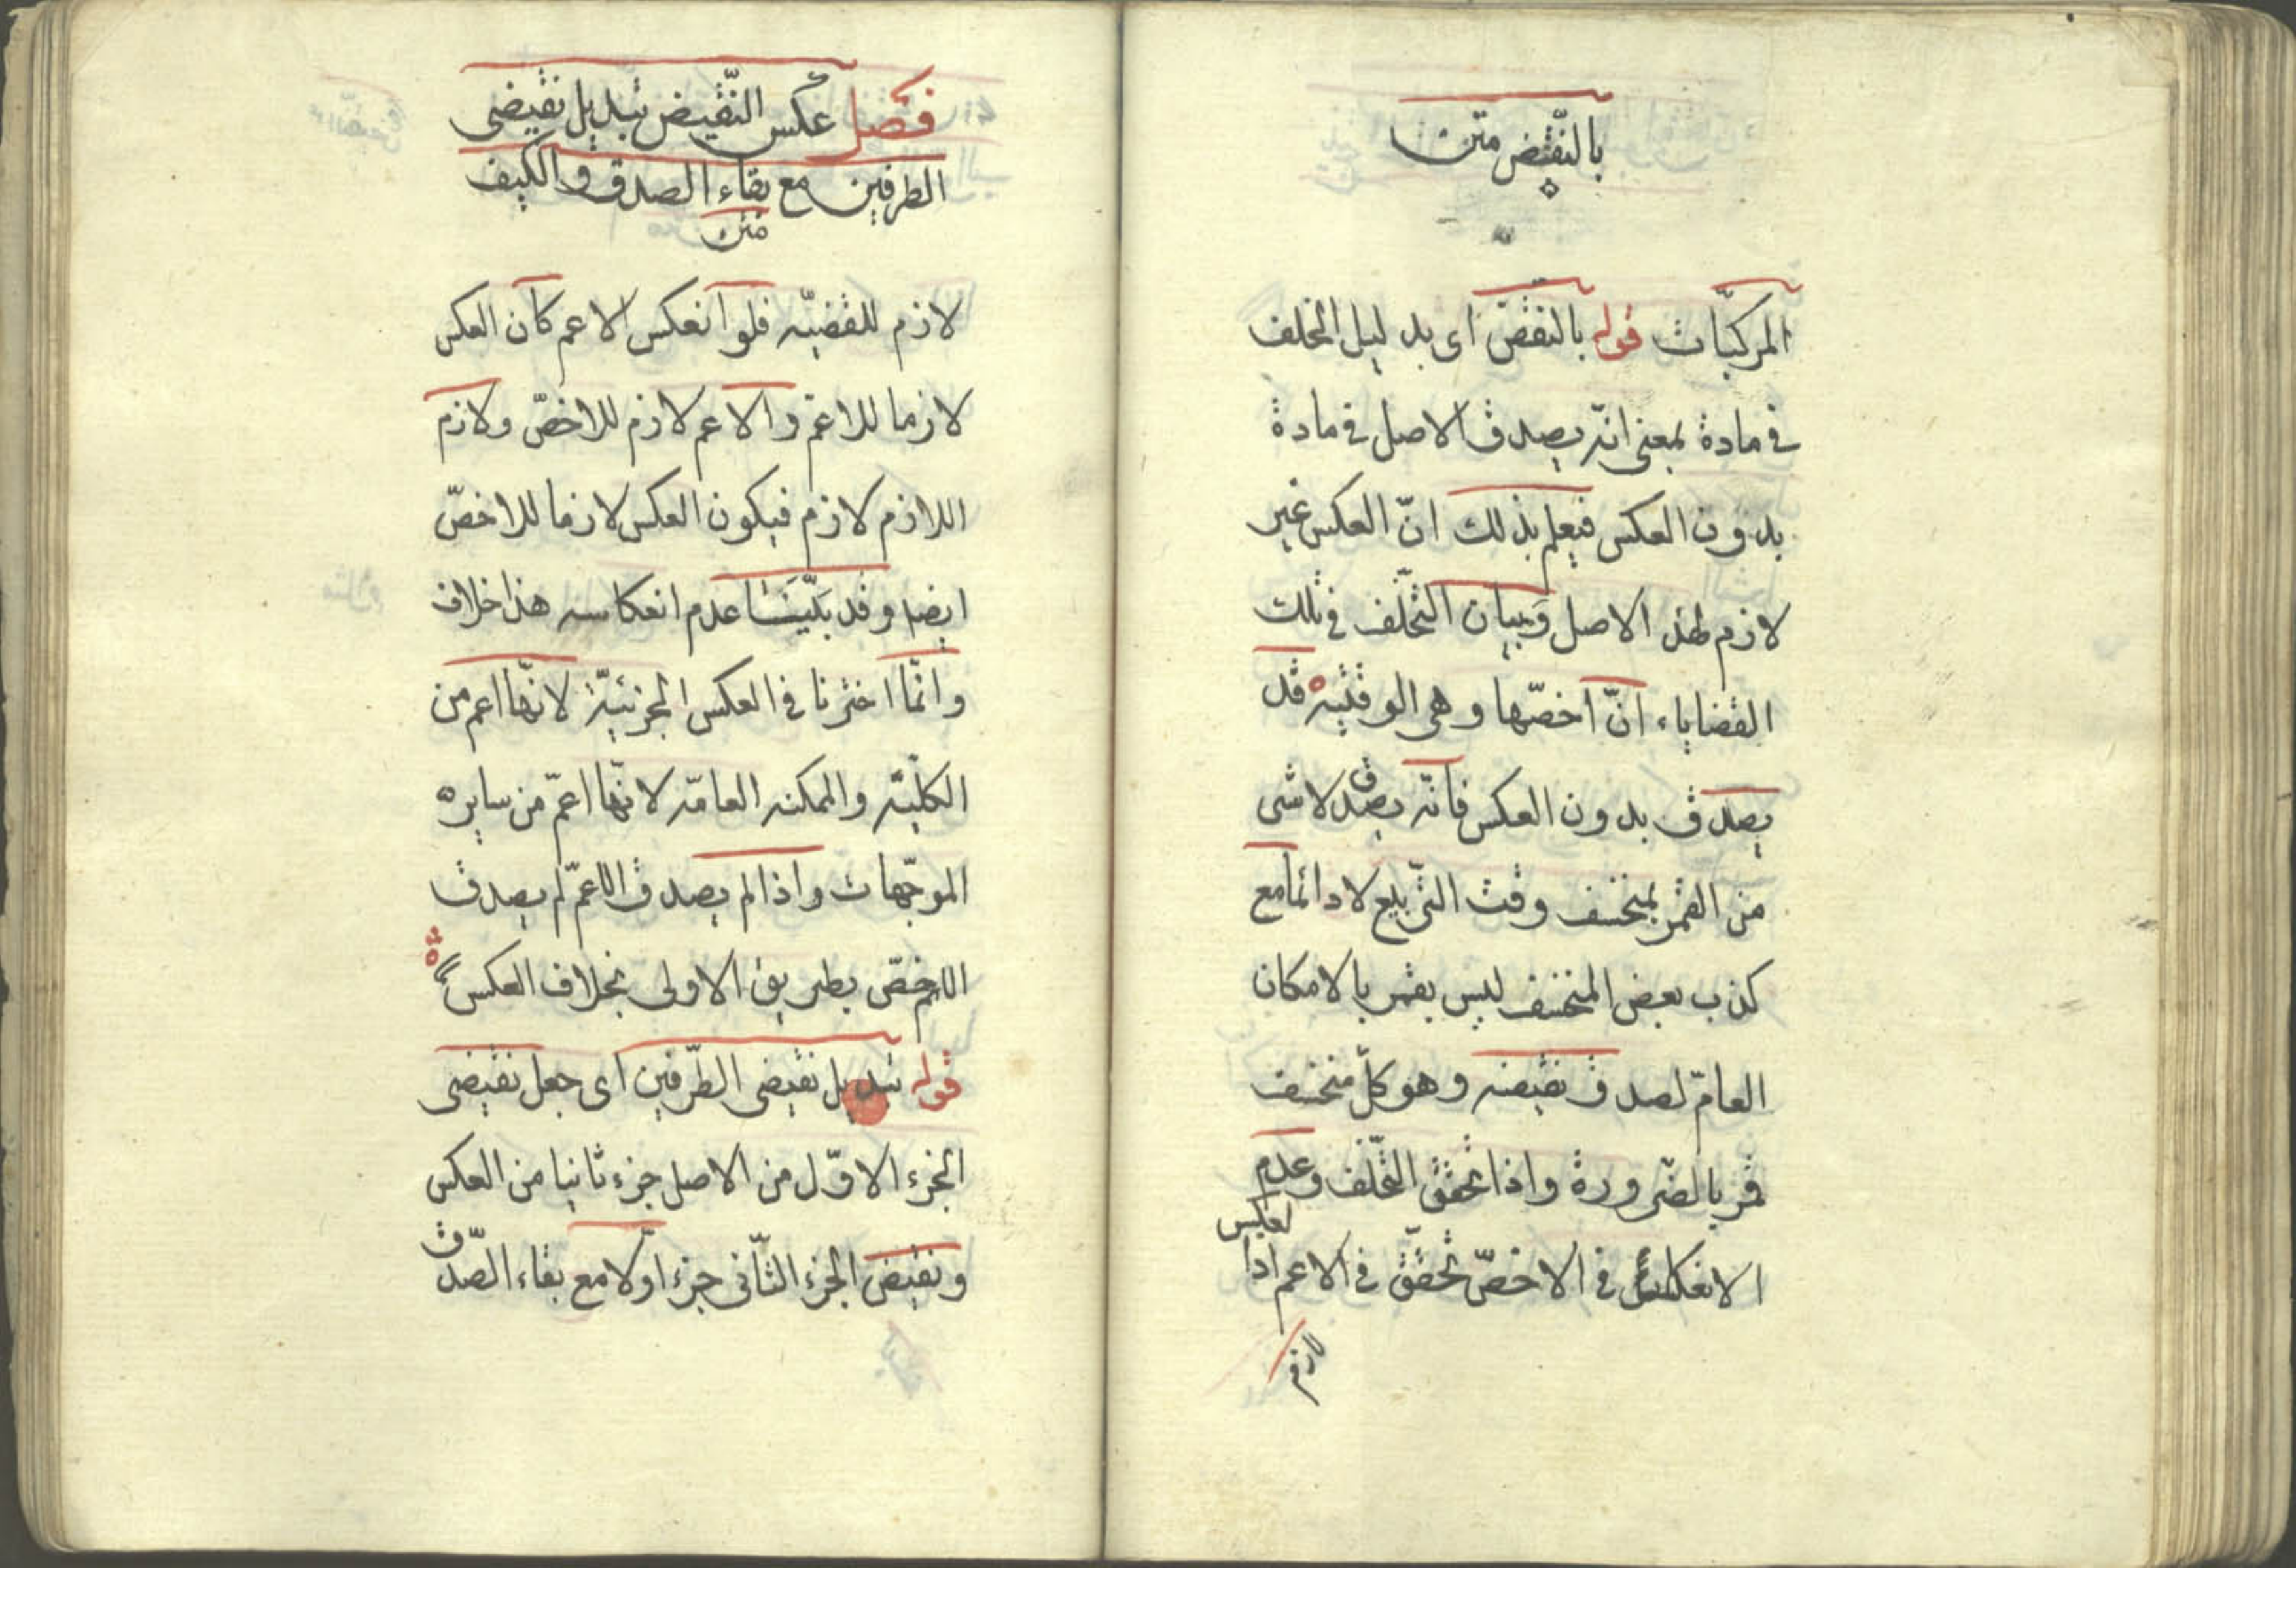 بالنّقيض متن
المركبّات قوله بالنقض اى بدليل التخلف
فى مادة بمعنى انّه يصدق الاصل فى مادة
بدون العكس فيعلم بذلك انّ العكس غير
لازم لهذا الاصل وَبيان التّخلّف فى تلك
القضاياء انّ اخصّها وهى الوقتيه قد
يصدق بدون العكس فانّه يصدق لا شى
من القمر بمنخسف وقت التّربيع لا دائما مع
كذب بعض المنخسف ليس بقمر بالامكان
العامّ لصدق نقيضه وهو كلّ منخسف
قمر بالضّرورة واذا تحقق التّخلّف وعدم
الانعكاس فى الاخصّ تحقّق فى الاعم اذا العكس
لازم
فصل عكس النّقيض تبديل نقيضى
الطرفين مع بقاء الصدق والكيف
متن
لازم للقضيّه فلو انعكس الاعم كان العكس
لازما للاعمّ والاعم لازم للاخصّ ولازم
اللازم لازم فيكون العكس لازما للاخصّ
ايضا وقد بَيّنّا عدم انعكاسه هذا خلاف
وانّما اخترنا فى العكس الجزئيّة لانّها اعم من
الكلّيّه والممكنه العامّه لانّها اعمّ من سايره
الموجّهات واذا لم يصدق الاعمّ لم يصدق
الاخصّ بطريق الاولى بخلاف العكس
قوله تبديل نقيضى الطّرفين اى جعل نقيضى
الجزء الاوّل من الاصل جزء ثانيا من العكس
ونقيض الجزء الثّانى جزء اوّلا مع بقاء الصّدق